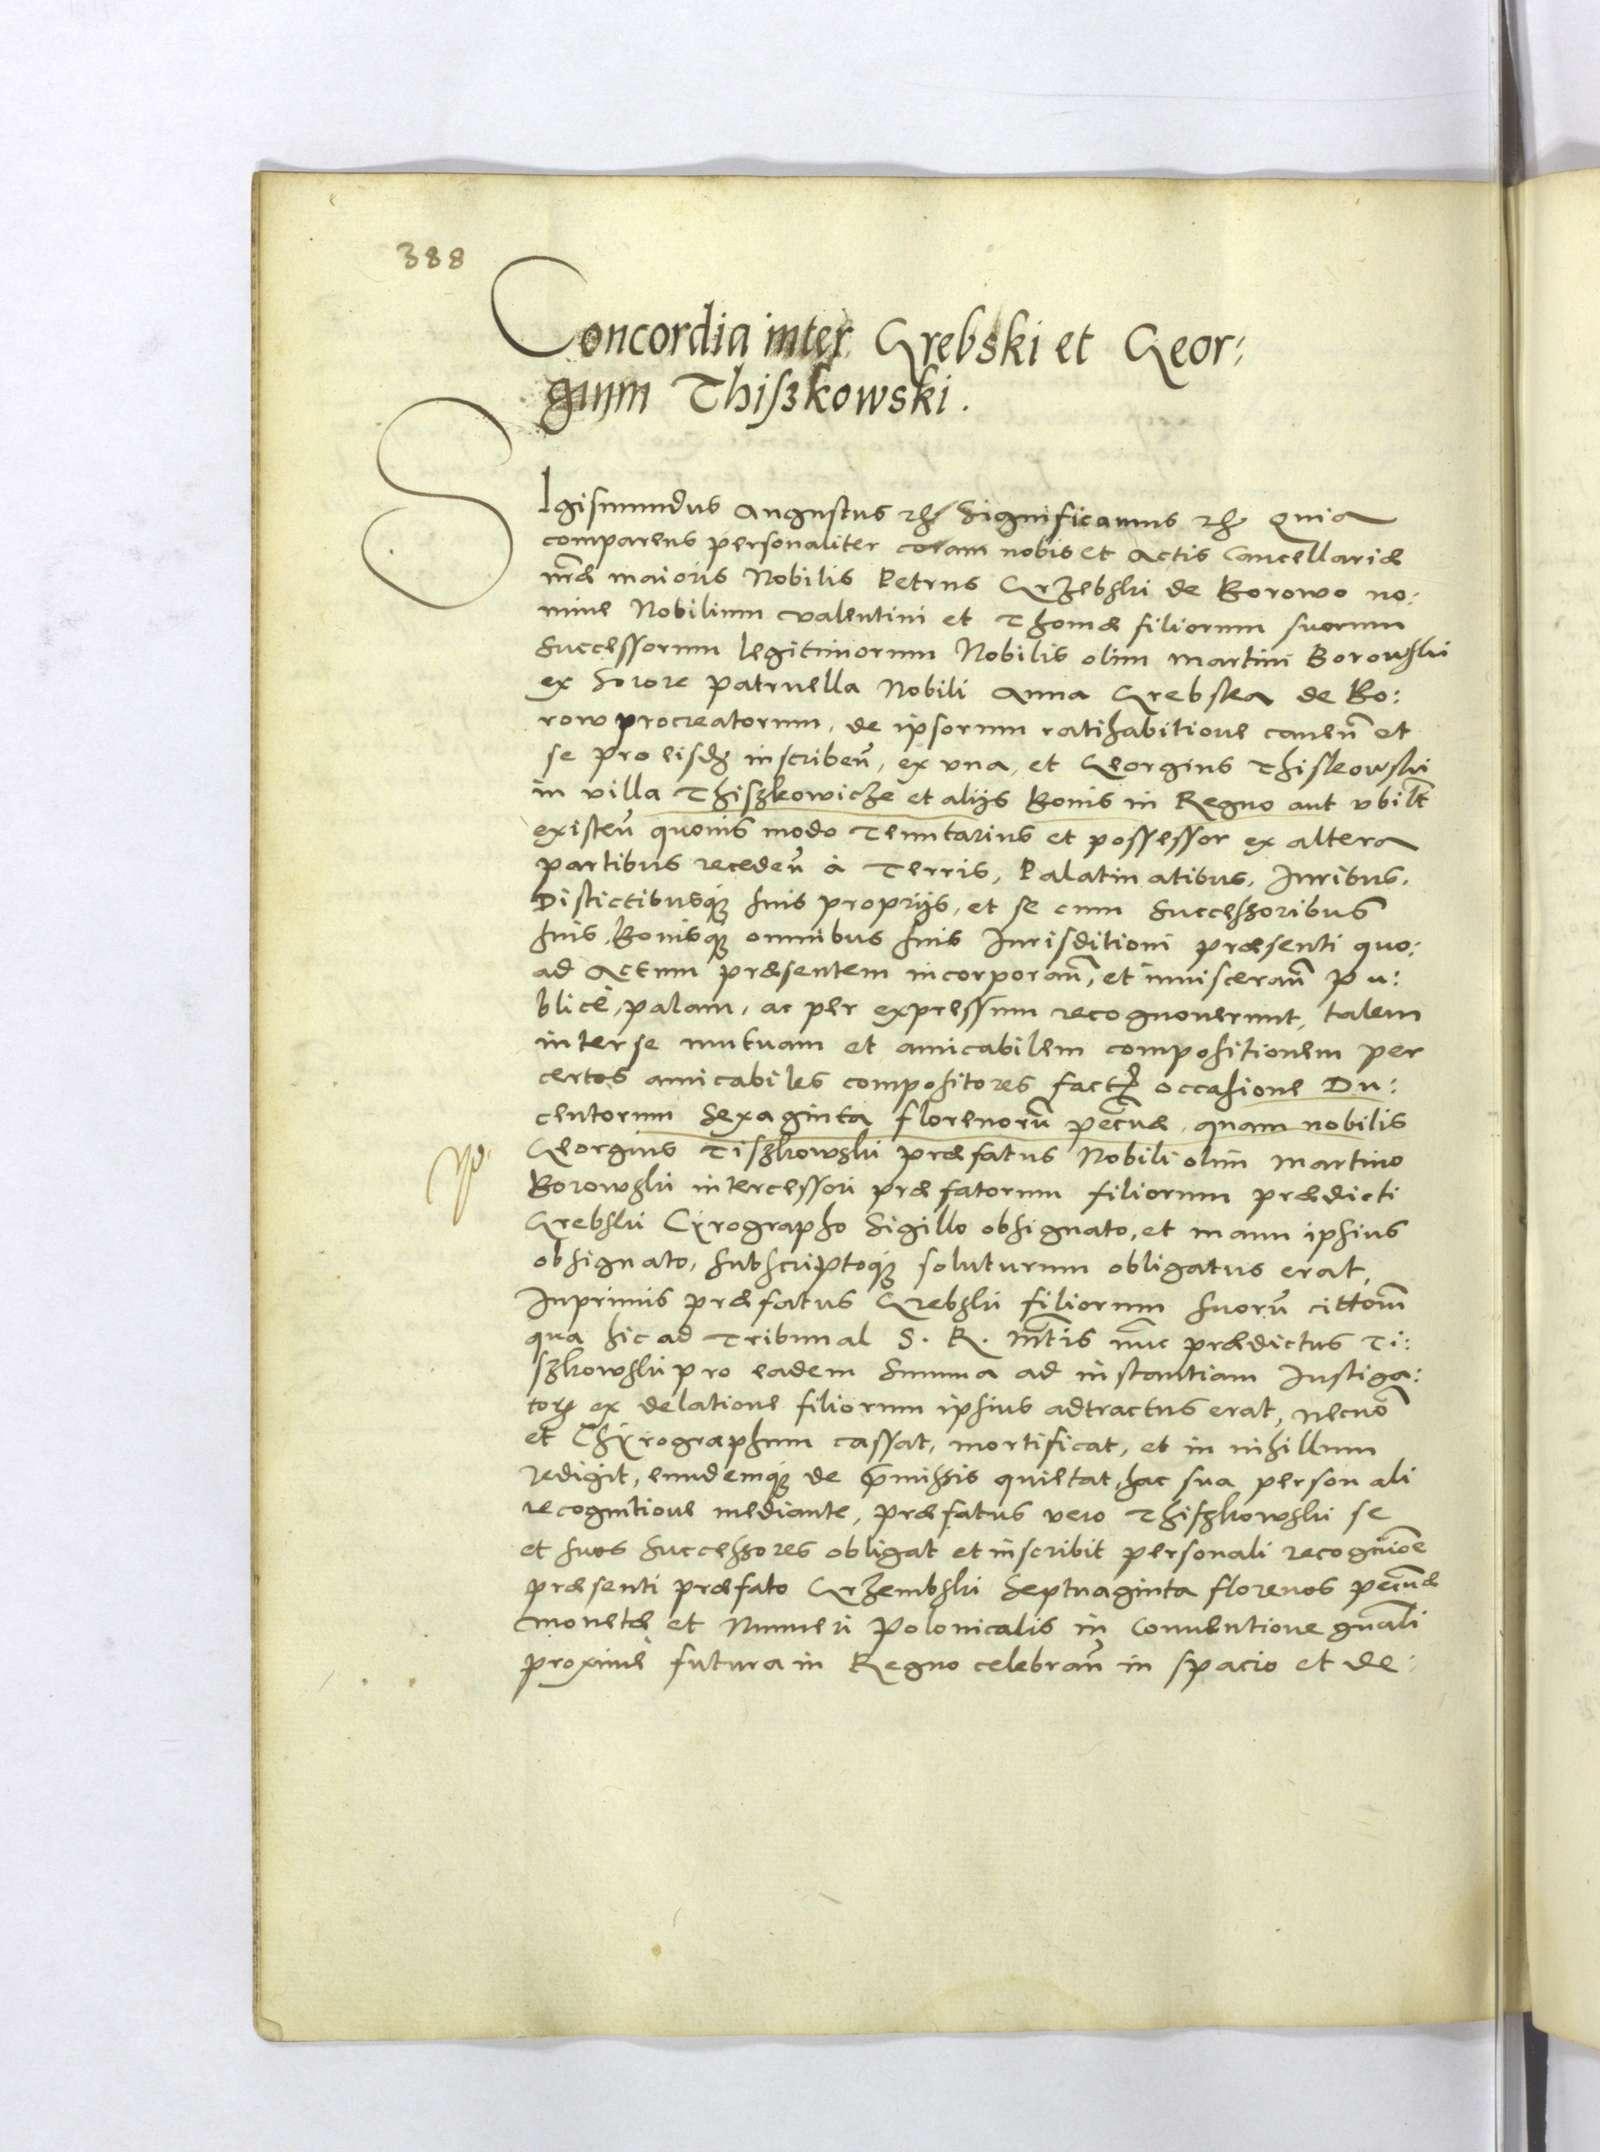 388
Concordia inter Grebski et Geor:
gium Thiszkowski.
SIgismundus Augustus etc Significamus etc Quia
comparens personaliter coram nobis et Actis Cancellariæ
nr̃æ maioris Nobilis Petrus Grzebski de Borowo no:
mine Nobilium Valentini et Thomæ filiorum suorum
Successorum legitimorum Nobilis olim Martini Borowski
ex sorore patruella Nobili Anna Grebska de Bo:
row procreatorum, de ipsorum ratihabitione cauen̄ et
se pro eisdẽ inscriben̄, ex una, et Georgius Thiskowski
in villa Thiszkowicze et alijs Bonis in Regno aut ubilt̃
existen̄ quouis modo Tenutarius et possessor ex altera
partibus receden̄ à Terris, Palatinatibus, Iuribus,
Distictibusq́ȝ suis proprijs, et se cum Successoribus
suis, Bonisq́ȝ omnibus suis Iurisditioni præsenti quo:
ad Actum præsentem incorporan̄, et inuisceran̄ pu:
blicè, palam, ac per expressum recognouerunt, talem
inter se mutuam et amicabilem compositionem per
certos amicabiles compositores fact̃ occasione Du:
centorum Sexaginta florenorū pec̃uæ, quam nobilis
Georgius Tiszkowski præfatus Nobili olim Martino
Borowski intercessori præfatorum filiorum prædicti
Grebski Cyrographo Sigillo obsignato, et manu ipsius
obsignato, subscriptoq́ȝ soluturum obligatus erat,
Inprimis præfatus Grebski filiorum suorū cittom̃
qua hic ad Tribunal S. R. Mt̃is nūc prædictus Ti:
szkowski pro eadem Summa ad instantiam Instiga:
torȝ ex delatione filiorum ipsius adtractus erat, necnō
et Chyrographum cassat, mortificat, et in nihillum
redigit, eundemq́ȝ de p̃missis quietat, hac sua personali
recognitione mediante, præfatus vero Thiszkowski se
et suos Successores obligat et inscribit personali recognic̃e
præsenti præfato Grzembski Septuaginta florenos pec̃uæ
monetæ et Numeri Polonicalis in Conuentione gñali
proximè futura in Regno celebran̄ in spacio et de: